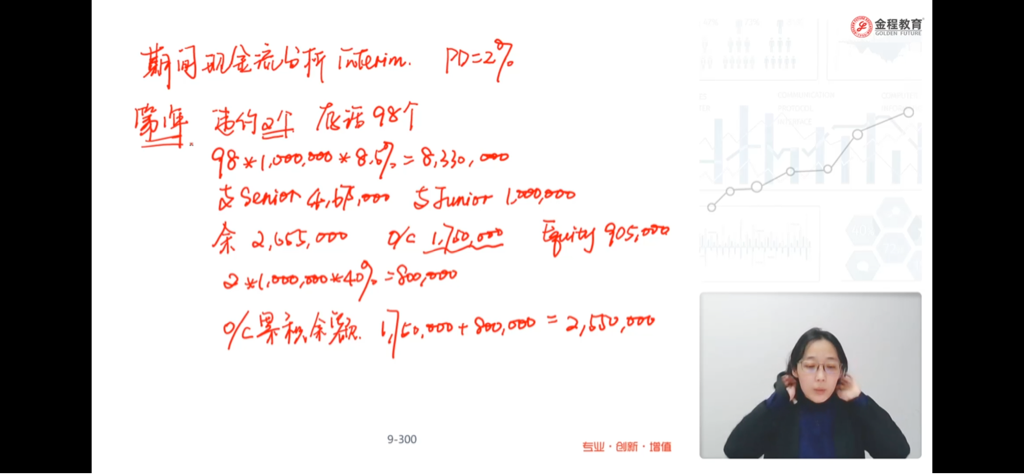 金程教育
GOLDEN FUTURE
期间现金流分析 interim. PD=2%
第1年. 违约2个 存活98个
98*1,000,000*8.5%=8,330,000
支Senior 4,675,000 支Junior 1,000,000
余 2,655,000 O/C 1,750,000 Equity 905,000
2*1,000,000*40%=800,000
O/C累积余额. 1,750,000+800,000=2,550,000
9-300
专业·创新·增值